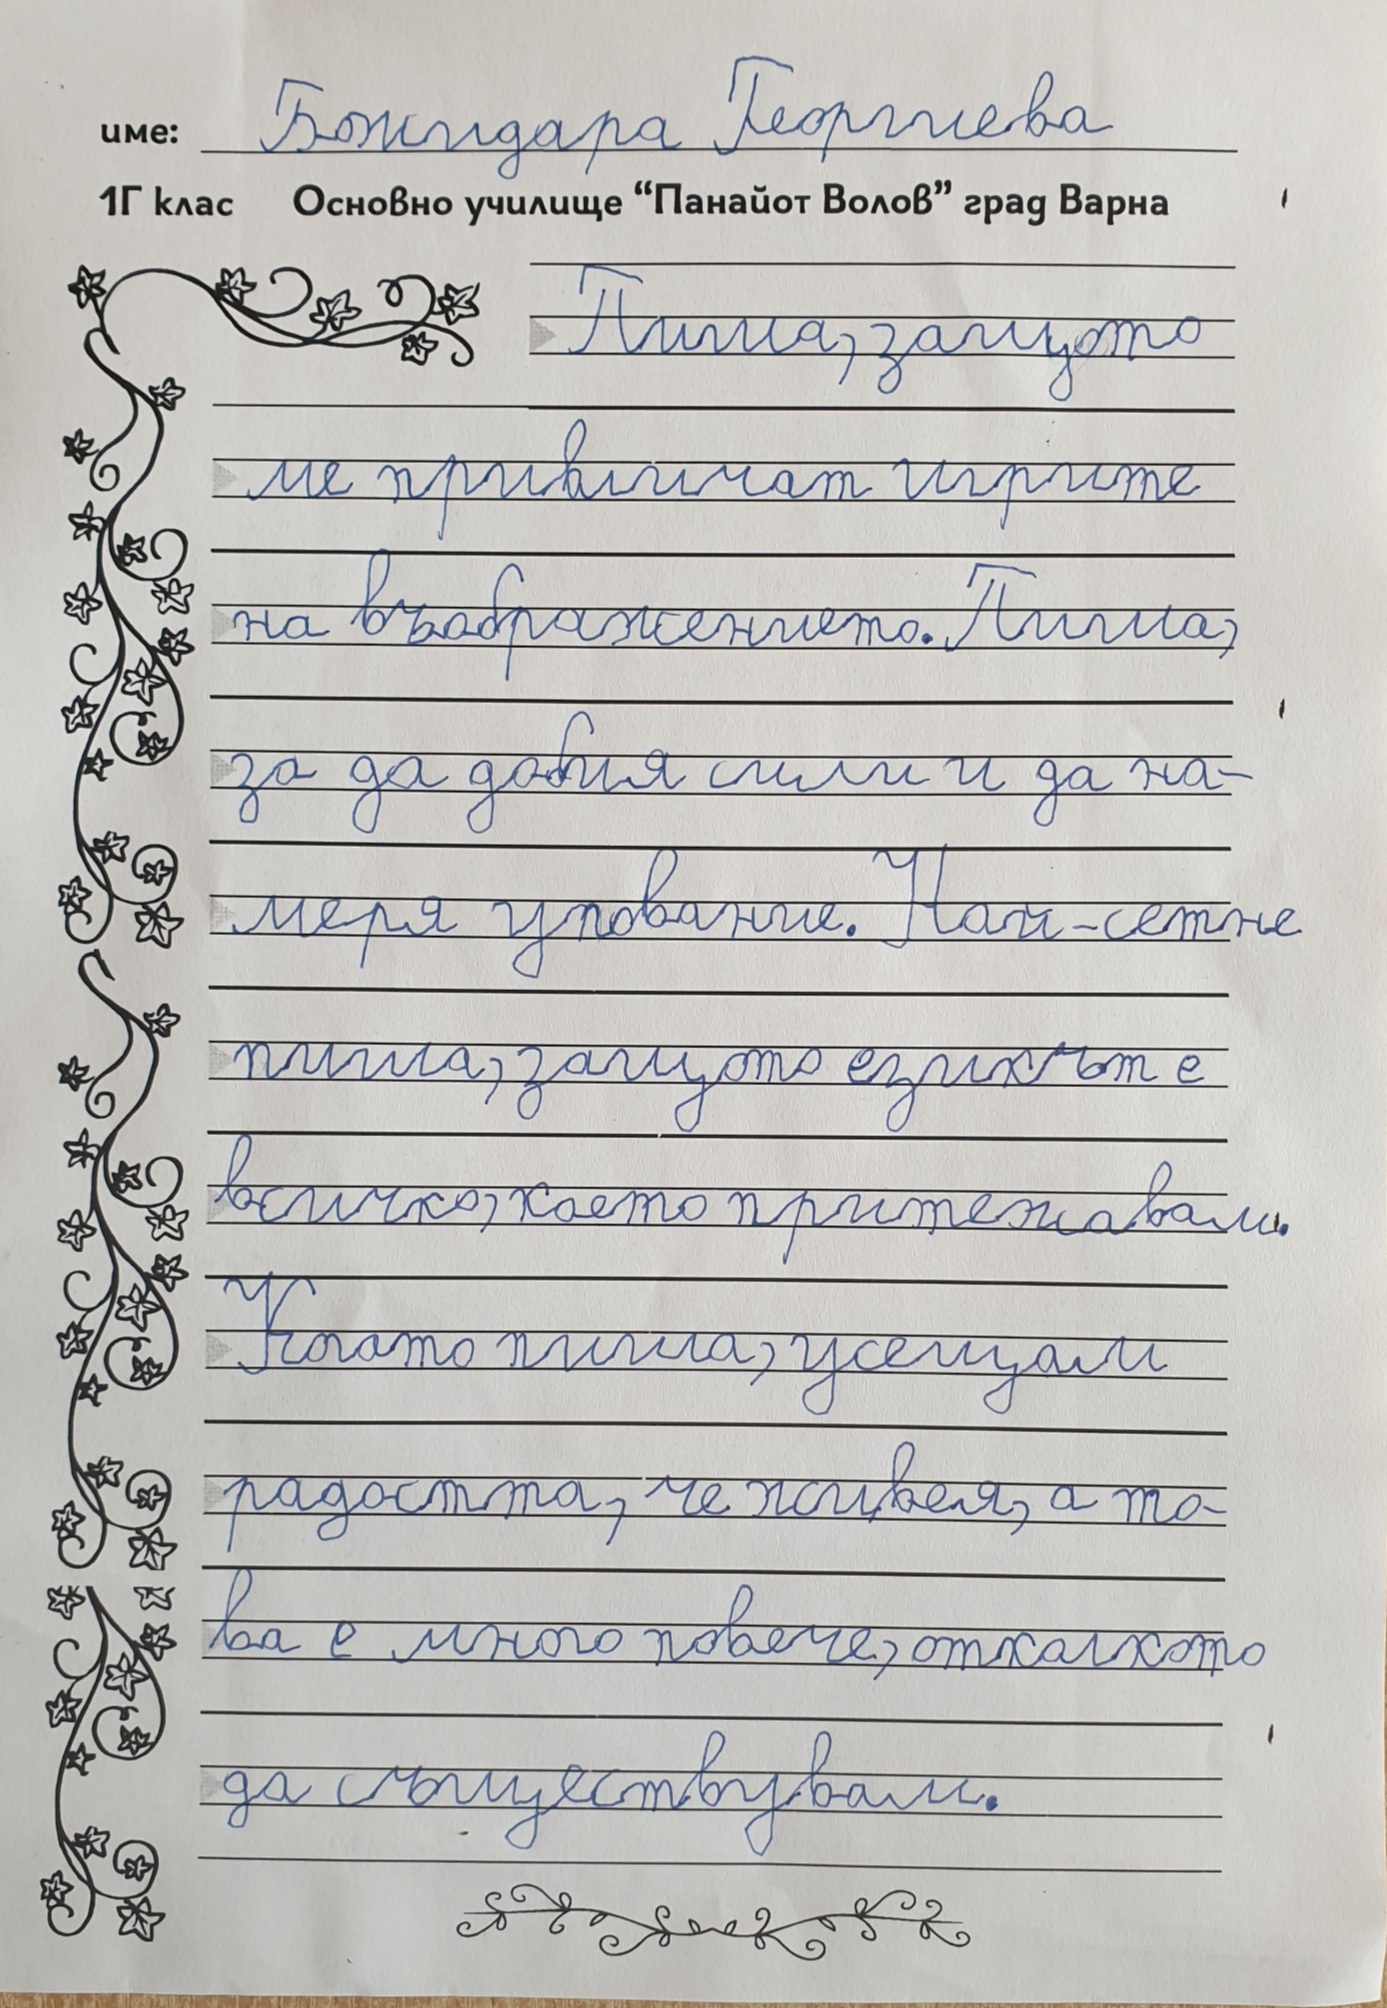 име: Божидара Георгиева
1Г клас Основно училище “Панайот Волов” град Варна
Пиша, защото
ме привличат игрите
на въображението. Пиша,
за да добия сили и да на-
меря упование. Най-сетне
пиша, защото езикът е
всичко, което притежавам.
Когато пиша, усещам
радостта, че живея, а то-
ва е много повече, отколкото
да съществувам.